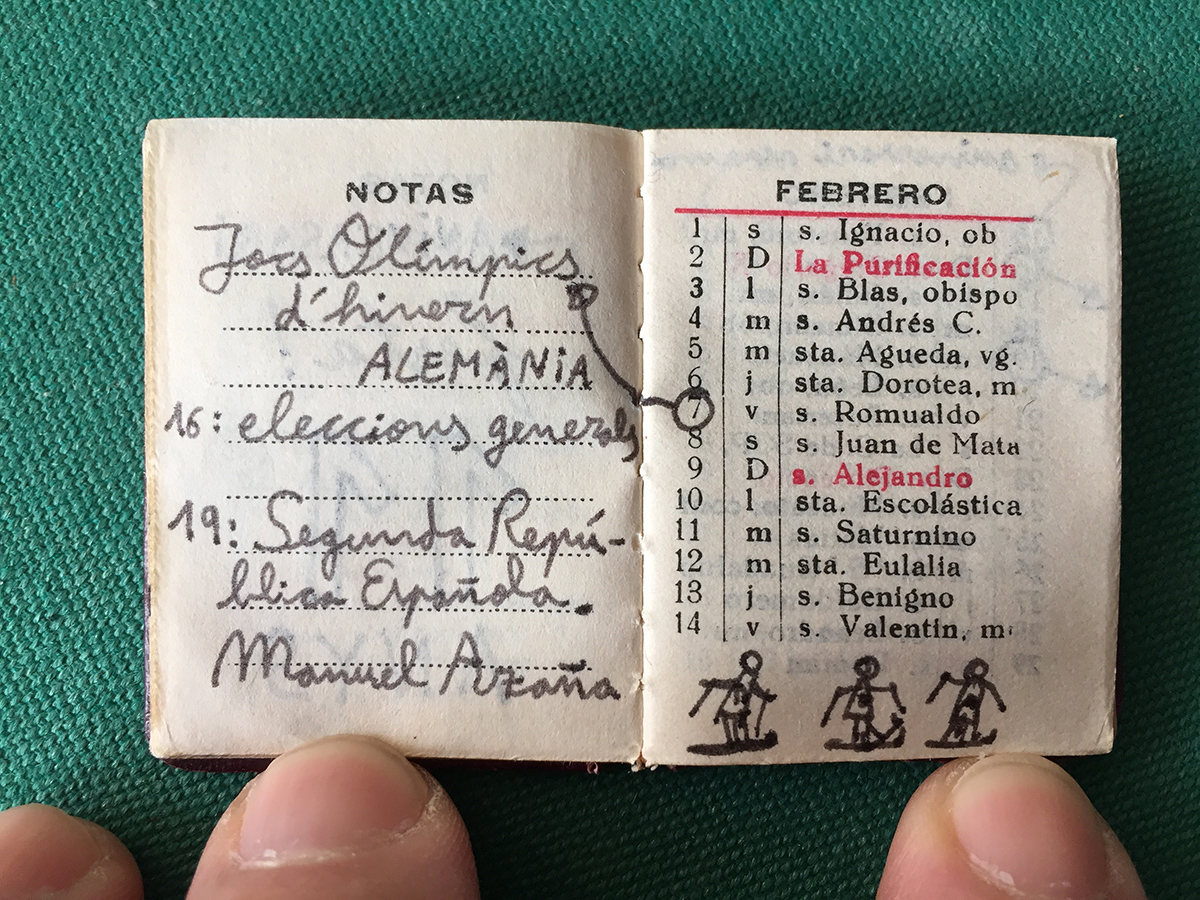 NOTAS
Jocs Olímpics
d'hivern
ALEMÀNiA
16: eleccions generals
19: Segunda Repú-
blica Española.
Manuel Azaña
FEBRERO
1 s s. Ignacio, ob
2 D La Purificación
3 l s. Blas, obispo
4 m s. Andrés C.
5 m sta. Agueda, vg.
6 j sta. Dorotea, m.
7 v s. Romualdo
8 s s. Juan de Mata
9 D s. Alejandro
10 l sta. Escolástica
11 m s. Saturnino
12 m sta. Eulalia
13 j s. Benigno
14 v s. Valentin, m.